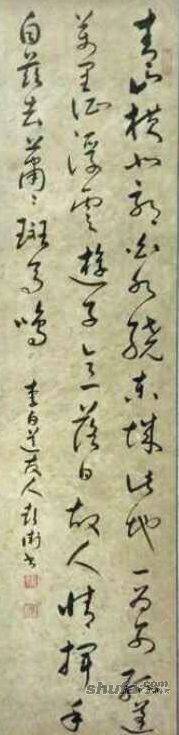 青山橫北郭白水繞東城此地一為別孤蓬
萬里征浮雲遊子意落日故人情揮手
自茲去蕭〻斑馬鳴
李白送友人